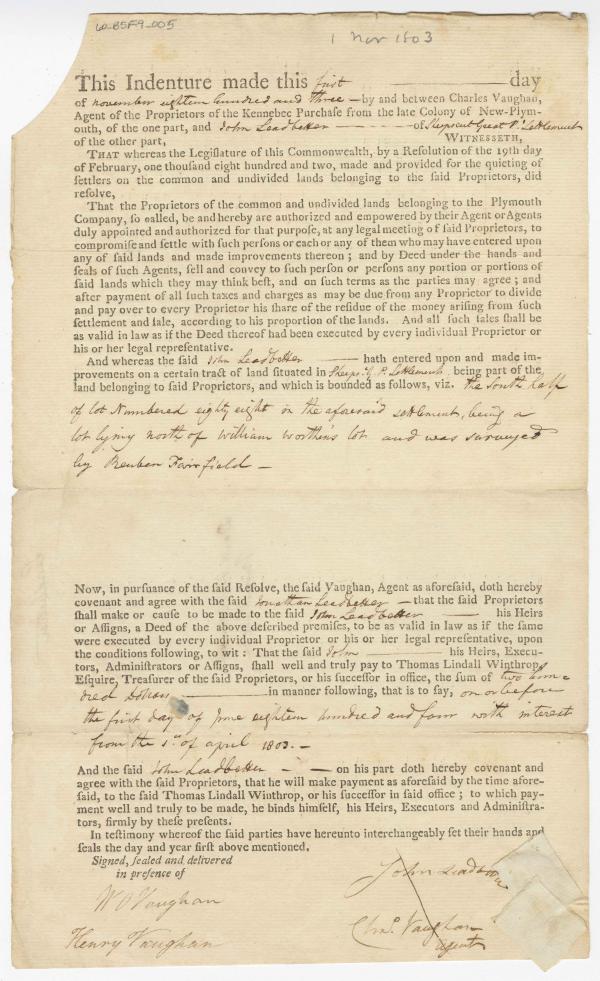 60-85F9-005
1 Nov 1803
This Indenture made this first day
of november eighteen hundred and three — by and between Charles Vaughan,
Agent of the Proprietors of the Kennebec Purchase from the late Colony of New-Plym-
outh, of the one part, and John Leadbetter - - - - of Sheepscut Great P. Settlement
of the other part, WITNESSETH,
THAT whereas the Legiſlature of this Commonwealth, by a Reſolution of the 19th day
of February, one thouſand eight hundred and two, made and provided for the quieting of
ſettlers on the common and undivided lands belonging to the ſaid Proprietors, did
reſolve,
That the Proprietors of the common and undivided lands belonging to the Plymouth
Company, ſo called, be and hereby are authorized and empowered by their Agent or Agents
duly appointed and authorized for that purpoſe, at any legal meeting of ſaid Proprietors, to
compromiſe and ſettle with ſuch perſons or each or any of them who may have entered upon
any of ſaid lands and made improvements thereon ; and by Deed under the hands and
ſeals of ſuch Agents, ſell and convey to ſuch perſon or perſons any portion or portions of
ſaid lands which they may think beſt, and on ſuch terms as the parties may agree ; and
after payment of all ſuch taxes and charges as may be due from any Proprietor to divide
and pay over to every Proprietor his ſhare of the reſidue of the money ariſing from ſuch
ſettlement and ſale, according to his proportion of the lands. And all ſuch ſales ſhall be
as valid in law as if the Deed thereof had been executed by every individual Proprietor or
his or her legal repreſentative.
And whereas the ſaid John Leadbetter — hath entered upon and made im-
provements on a certain tract of land ſituated in Sheeps. G. P. Settlement being part of the
land belonging to ſaid Proprietors, and which is bounded as follows, viz. the South half
of lot Numbered eighty eight in the aforesaid settlement, being a
lot lying north of William Worthen's lot and was surveyed
by Reuben Fairfield —
Now, in purſuance of the ſaid Reſolve, the ſaid Vaughan, Agent as aforeſaid, doth hereby
covenant and agree with the ſaid Jonathan Leadbetter — that the ſaid Proprietors
ſhall make or cauſe to be made to the ſaid John Leadbetter — his Heirs
or Aſſigns, a Deed of the above deſcribed premiſes, to be as valid in law as if the ſame
were executed by every individual Proprietor or his or her legal repreſentative, upon
the conditions following, to wit : That the ſaid John — his Heirs, Execu-
tors, Adminiſtrators or Aſſigns, ſhall well and truly pay to Thomas Lindall Winthrop,
Eſquire, Treaſurer of the ſaid Proprietors, or his ſucceſſor in office, the ſum of two hun-
dred Dollars — in manner following, that is to ſay, on or before
the first day of June eighteen hundred and four with interest
from the 1st of april 1803. —
And the ſaid John Leadbetter — — on his part doth hereby covenant and
agree with the ſaid Proprietors, that he will make payment as aforeſaid by the time afore-
ſaid, to the ſaid Thomas Lindall Winthrop, or his ſucceſſor in ſaid office ; to which pay-
ment well and truly to be made, he binds himſelf, his Heirs, Executors and Adminiſtra-
tors, firmly by theſe preſents.
In teſtimony whereof the ſaid parties have hereunto interchangeably ſet their hands and
ſeals the day and year firſt above mentioned.
Signed, ſealed and delivered
in preſence of
John Leadbetter
W O Vaughan
Chas. Vaughan
Henry Vaughan
agent